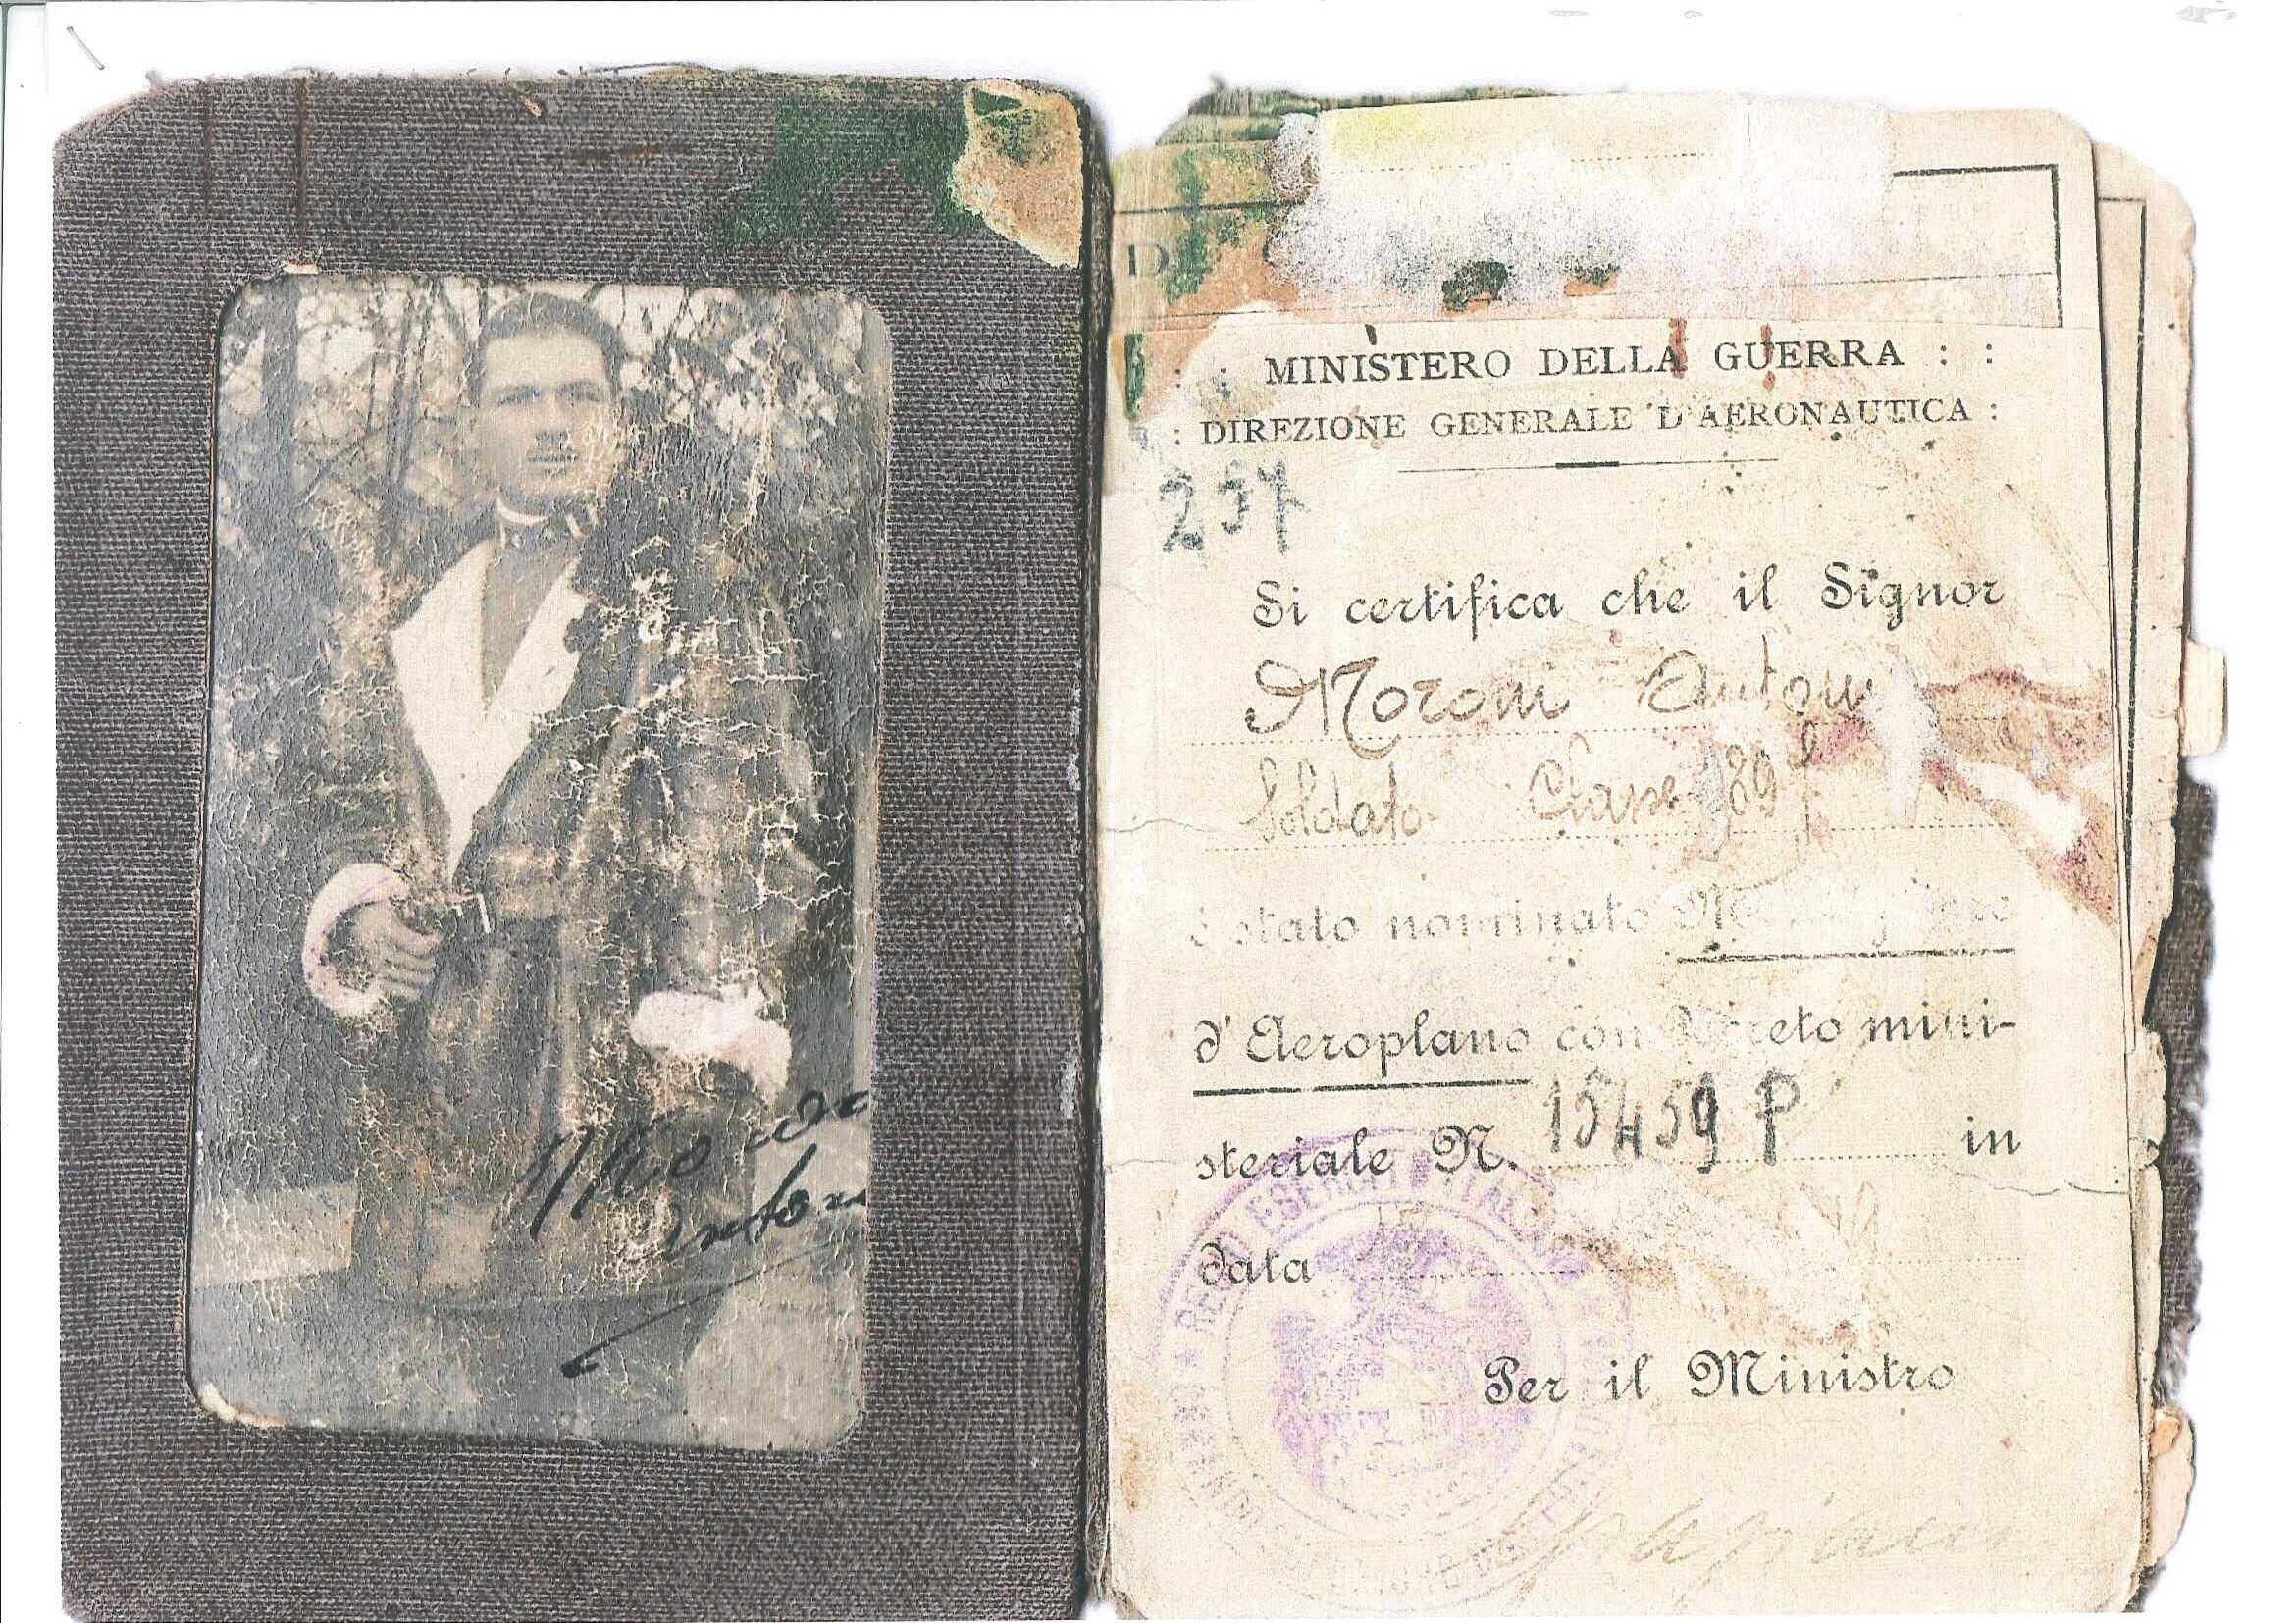 Moroni
Antoni
D
: : MINISTERO DELLA GUERRA : :
: DIREZIONE GENERALE D'AERONAUTICA :
257
Si certifica che il Signor
Moroni Antoni
Soldato Classe 189
è stato nominato
d'Aeroplano con Decreto mini-
steriale N. 15459 P in
data
REGIO ESERCITO ITALIANO
Per il Ministro